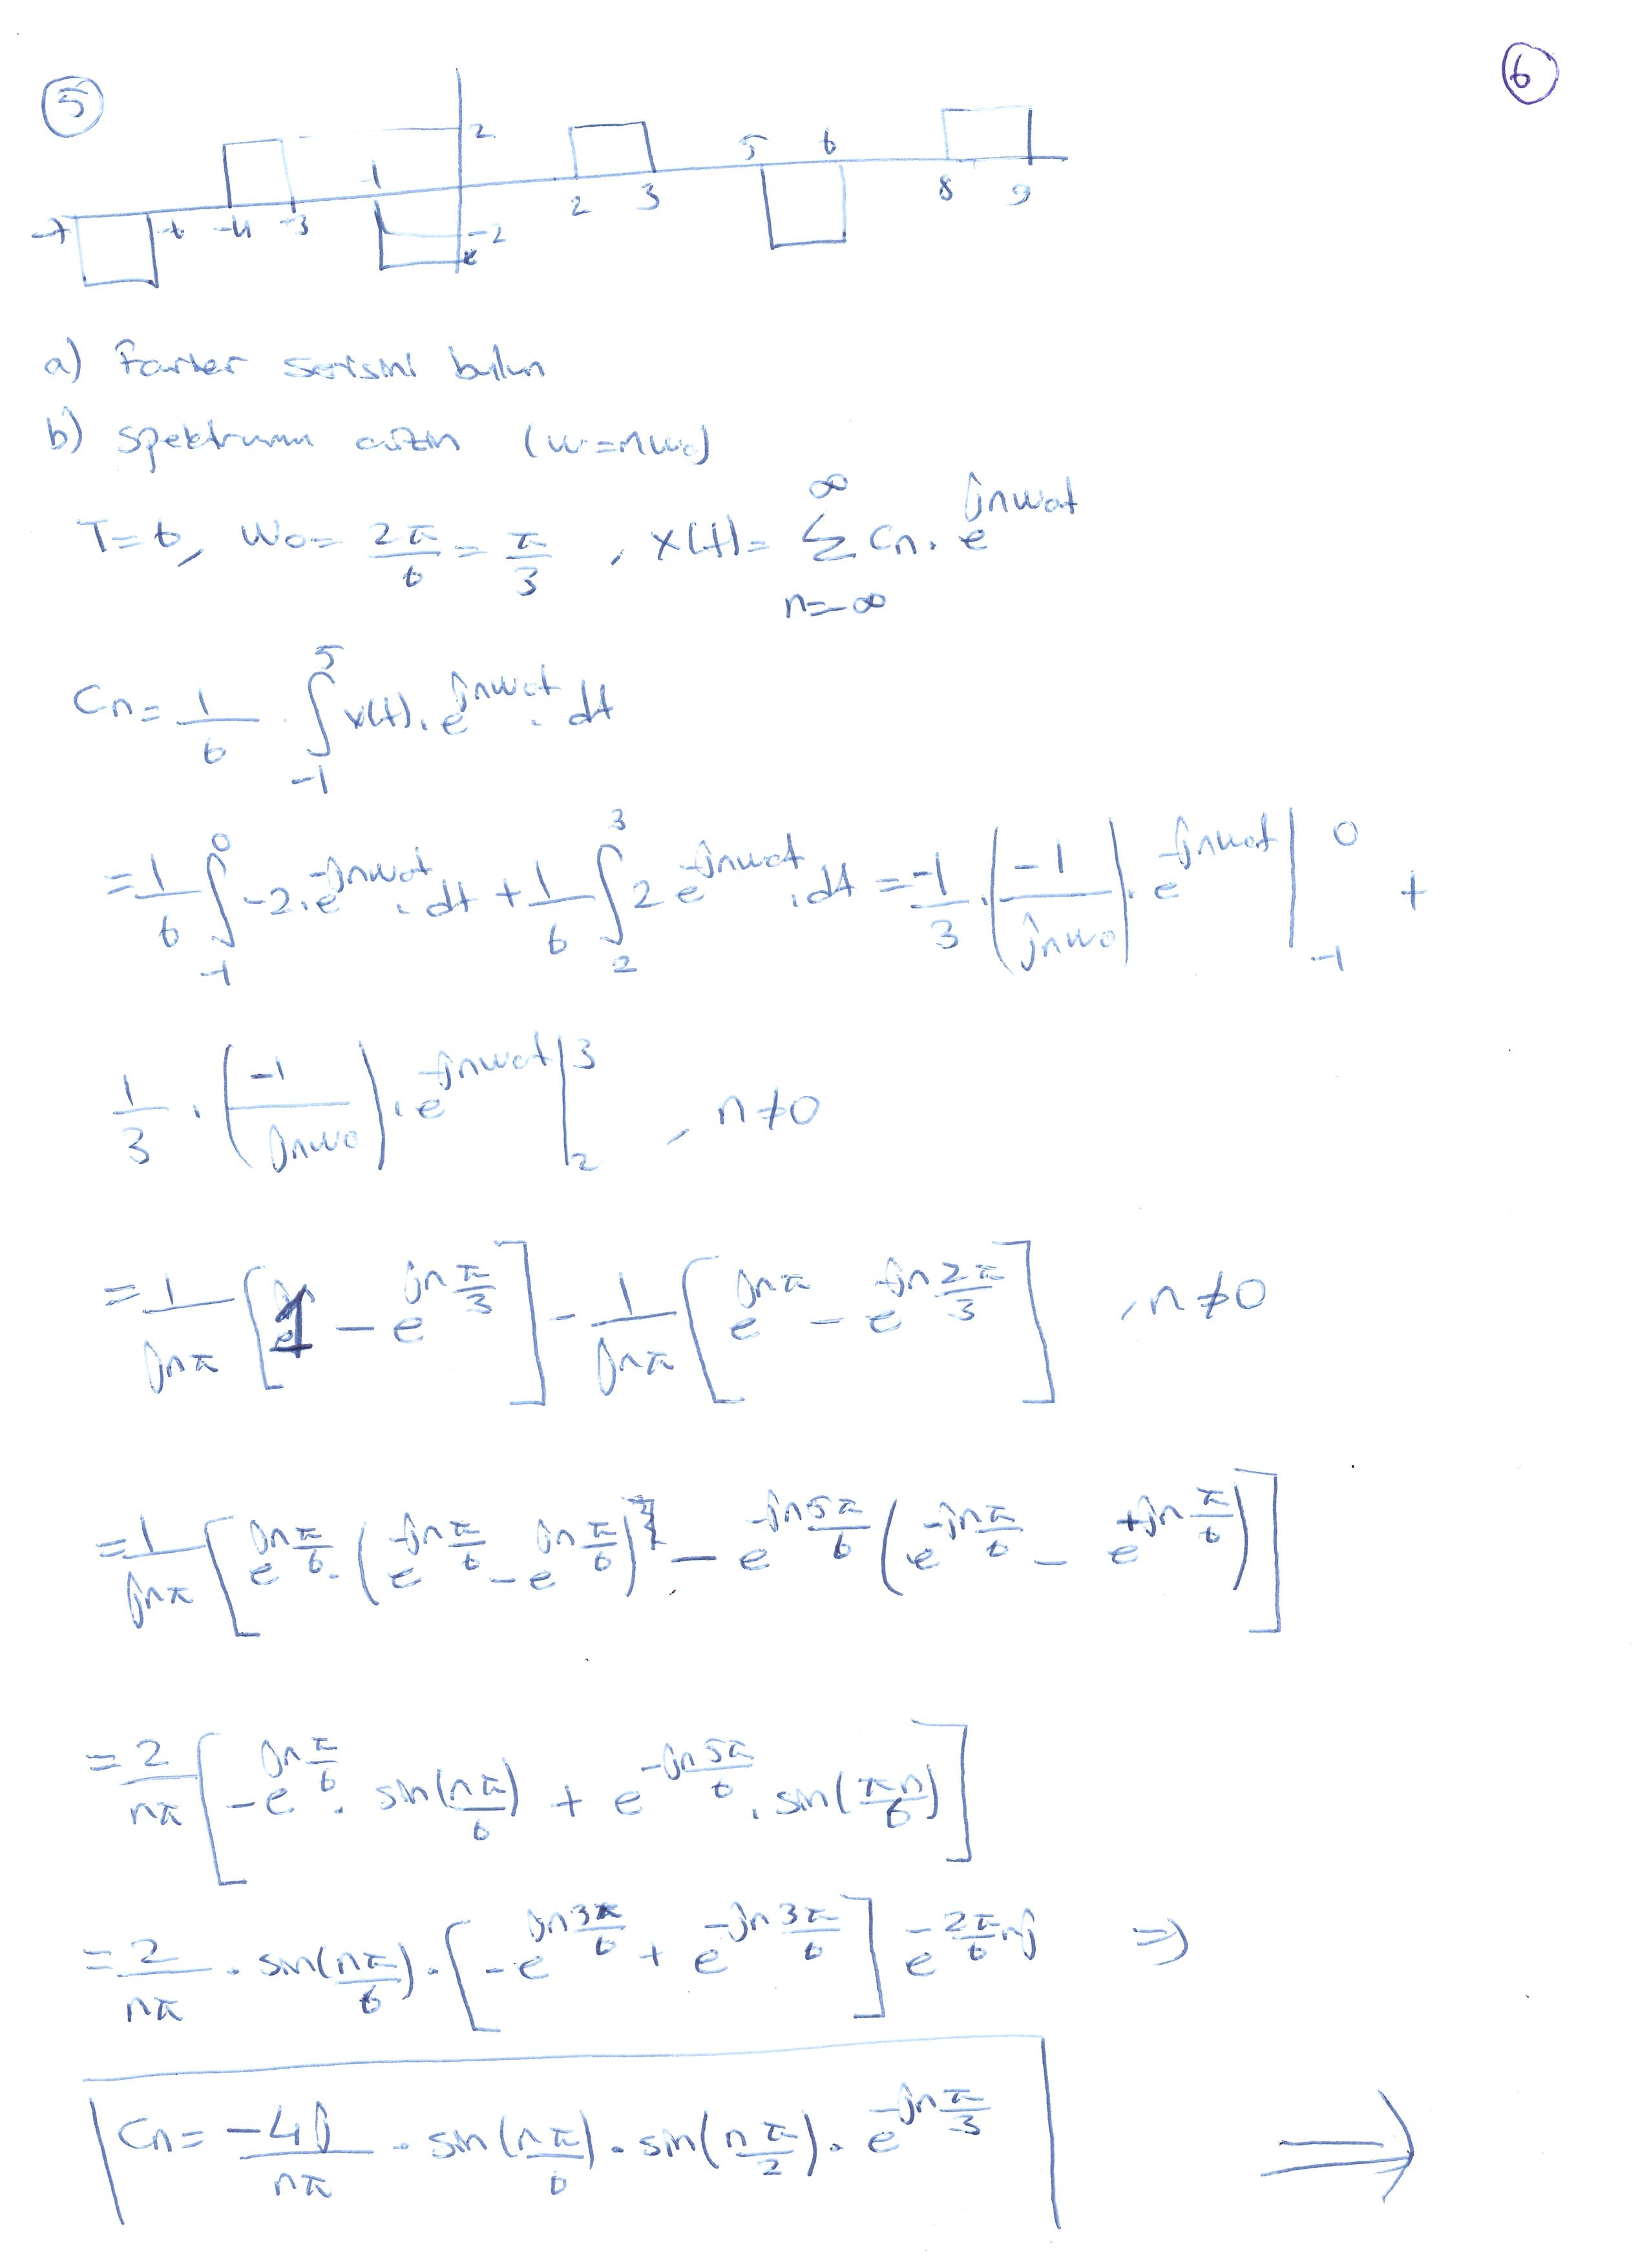 5
6
2
-1
5 6
-7 -6 -4 -3 -2 2 3 8 9
a) Fourier serisini bulun
b) spektrumu çizin (w=nw₀)
T=6, w₀= 2π/6 = π/3 , x(t)= ∑_{n=-∞}^{∞} Cn. e^{jnw₀t}
Cn= 1/6 . ∫_{-1}^{5} x(t). e^{jnw₀t}. dt
= 1/6 ∫_{-1}^{0} -2. e^{-jnw₀t}. dt + 1/6 ∫_{2}^{3} 2 e^{-jnw₀t}. dt = -1/3 . (-1/jnw₀). e^{-jnw₀t} |_{-1}^{0} +
1/3 . (-1/jnw₀). e^{-jnw₀t} |_{2}^{3} , n≠0
= 1/jnπ [1 - e^{jnπ/3}] - 1/jnπ [e^{jnπ} - e^{-jn2π/3}] , n≠0
= 1/jnπ [e^{jnπ/6}. (e^{-jnπ/6} - e^{jnπ/6}) - e^{-jn5π/6} (e^{-jnπ/6} - e^{+jnπ/6})]
= 2/nπ [-e^{jnπ/6}. sin(nπ/6) + e^{-jn5π/6}. sin(πn/6)]
= 2/nπ . sin(nπ/6). [-e^{jn3π/6} + e^{-jn3π/6}] e^{-2π/6 nj} ⇒
Cn= -4j/nπ . sin(nπ/6). sin(nπ/2). e^{-jnπ/3} ⇒